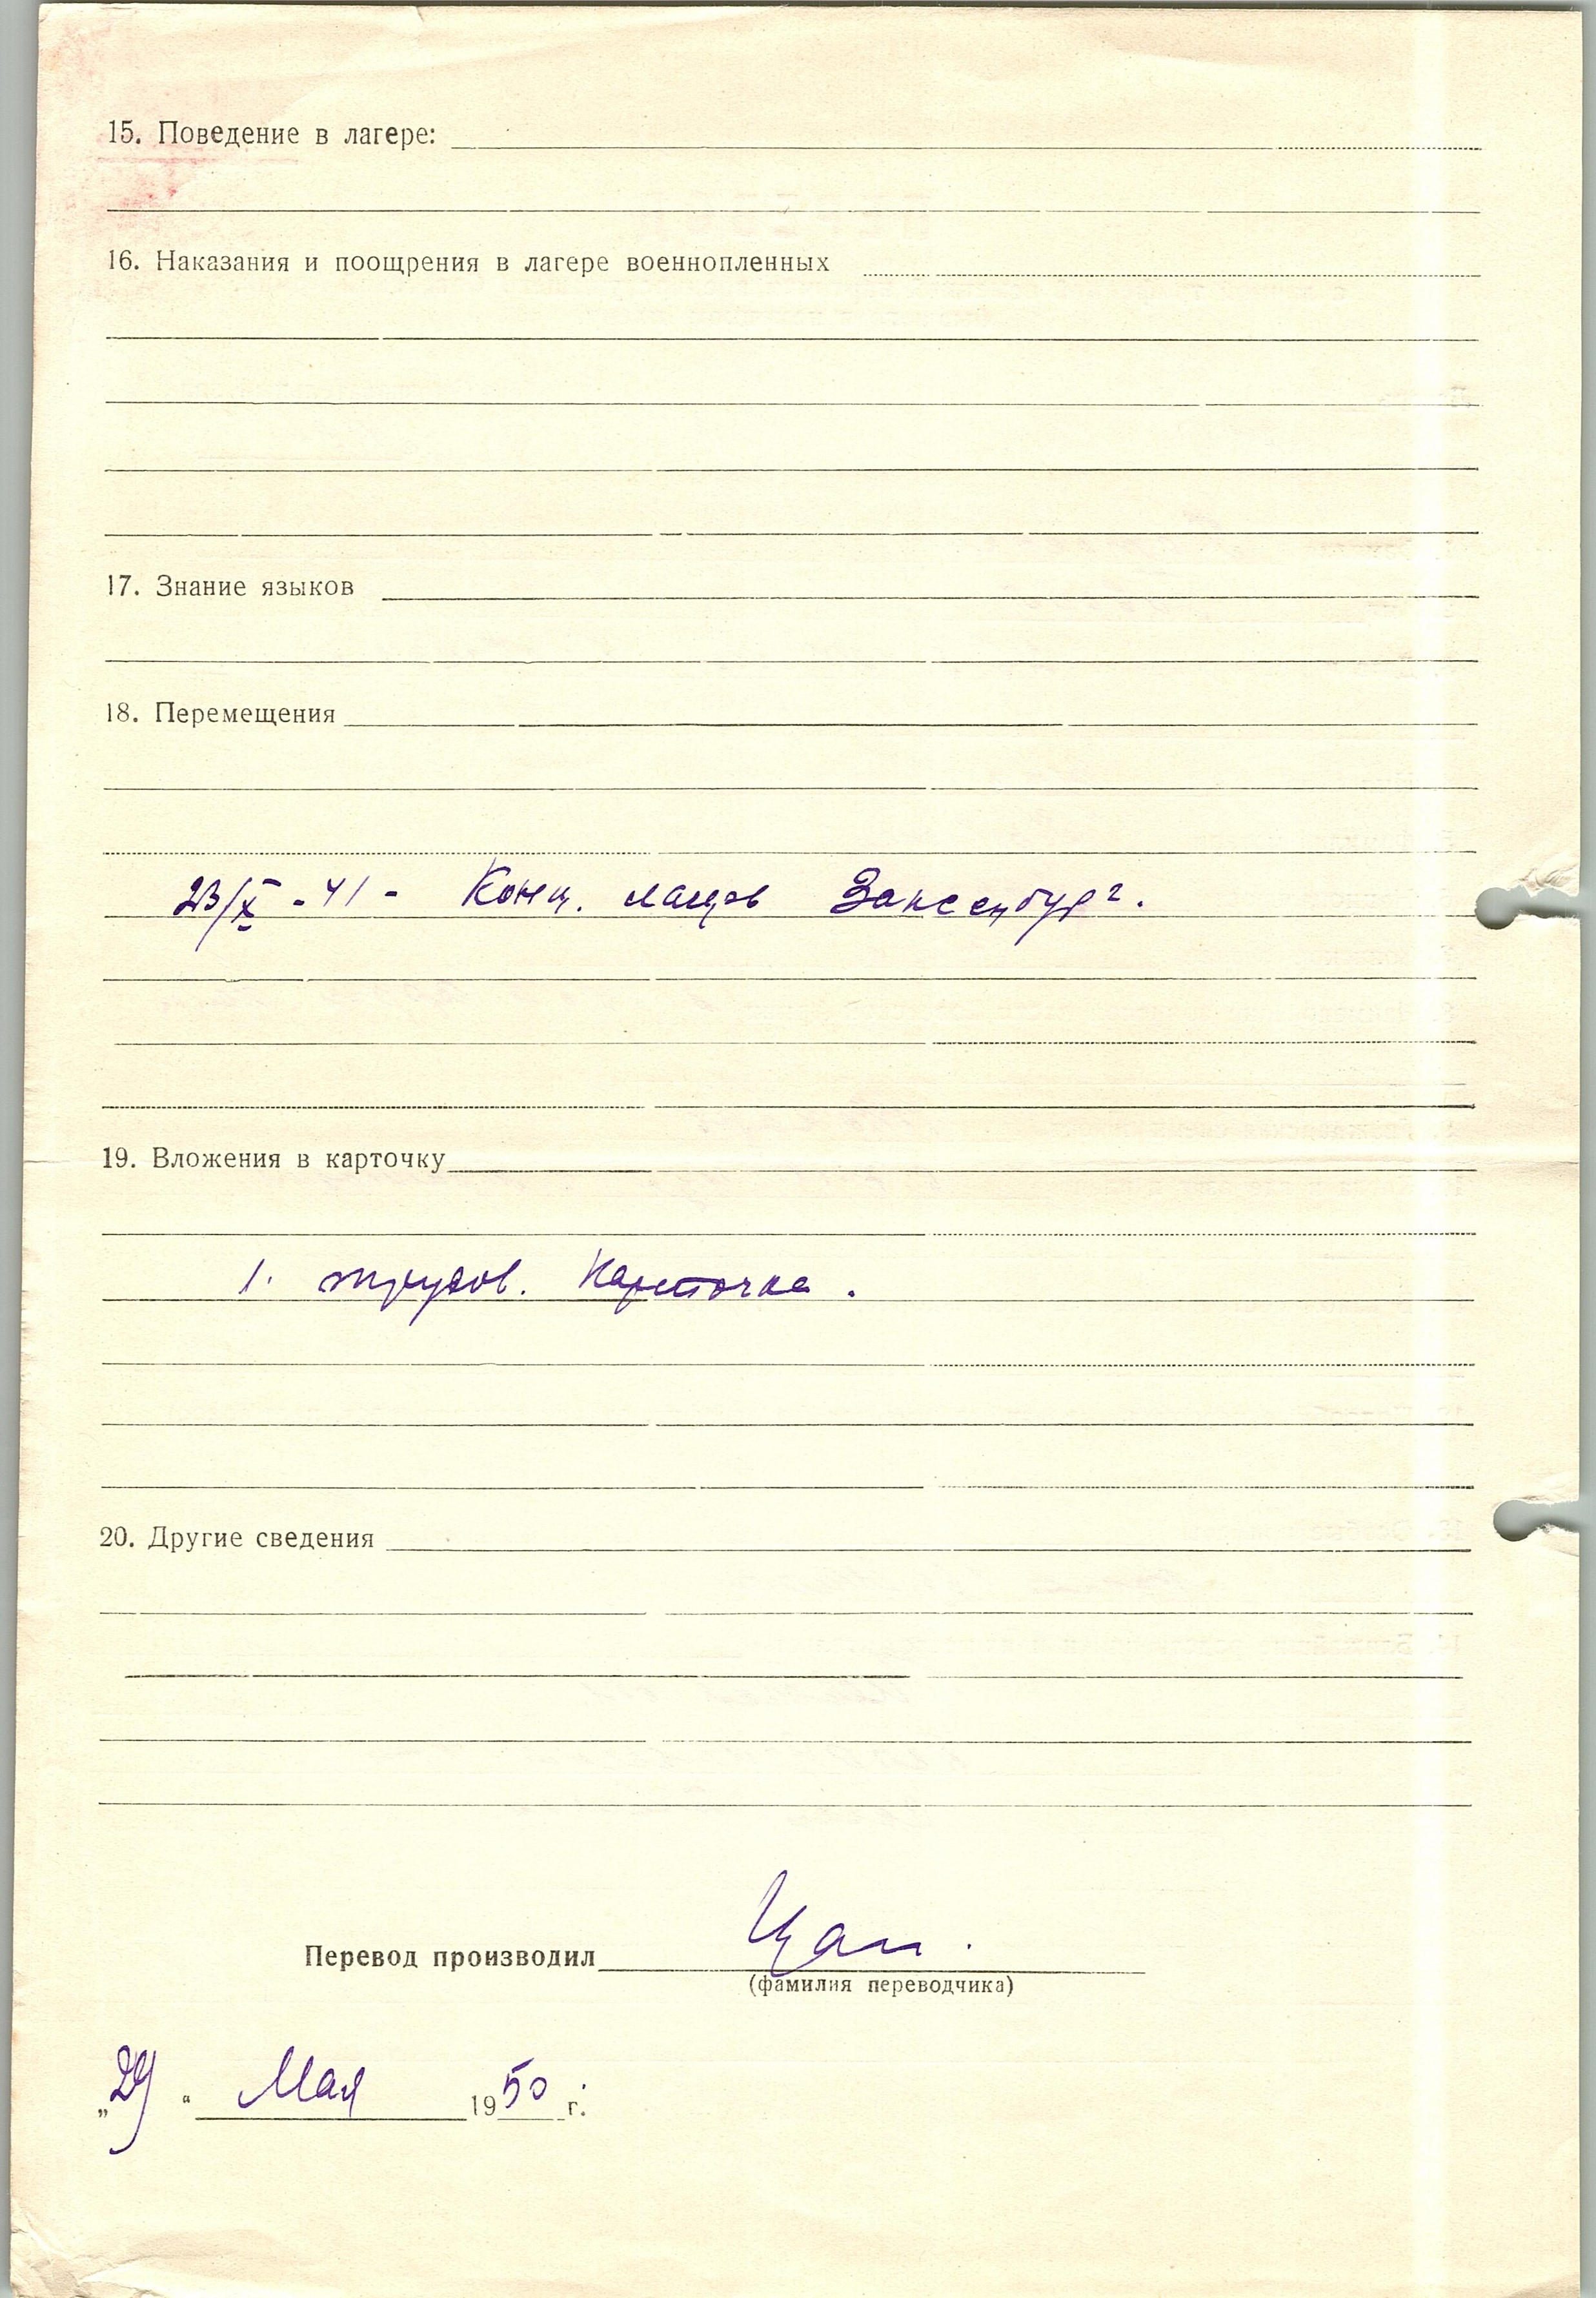 15. Поведение в лагере:
16. Наказания и поощрения в лагере военнопленных
17. Знание языков
18. Перемещения
23/X - 41 - Конц. лагерь Заксенбург.
19. Вложения в карточку
1. трудов. карточка.
20. Другие сведения
Перевод производил Цап.
(фамилия переводчика)
„29“ Мая 1950 г.